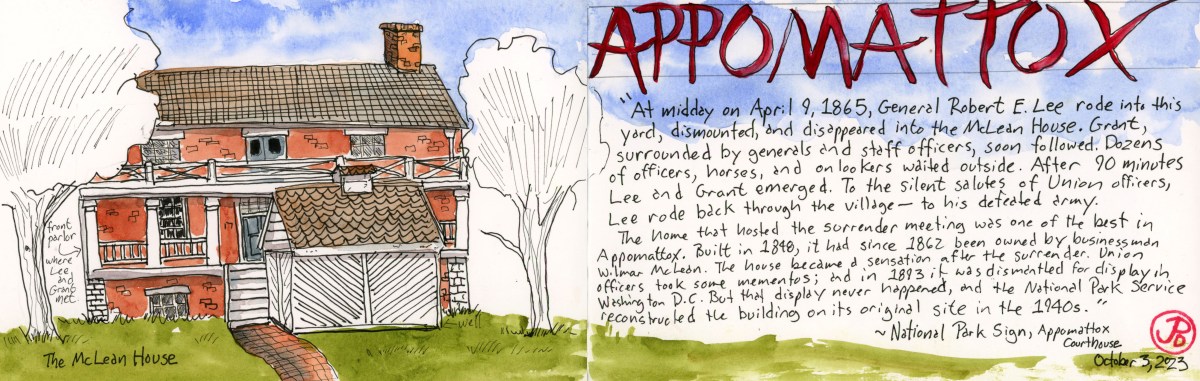 front
parlor
where
Lee
and
Grant
met
well
The McLean House
APPOMATTOX
"At midday on April 9, 1865, General Robert E. Lee rode into this
yard, dismounted, and disappeared into the McLean House. Grant,
surrounded by generals and staff officers, soon followed. Dozens
of officers, horses, and onlookers waited outside. After 90 minutes
Lee and Grant emerged. To the silent salutes of Union officers,
Lee rode back through the village— to his defeated army.
The home that hosted the surrender meeting was one of the best in
Appomattox. Built in 1848, it had since 1862 been owned by businessman
Wilmar McLean. The house became a sensation after the surrender. Union
officers took some mementos; and in 1893 it was dismantled for display in
Washington D.C. But that display never happened, and the National Park Service
reconstructed the building on its original site in the 1940s."
~ National Park Sign, Appomattox
Courthouse
JPD
October 3, 2023